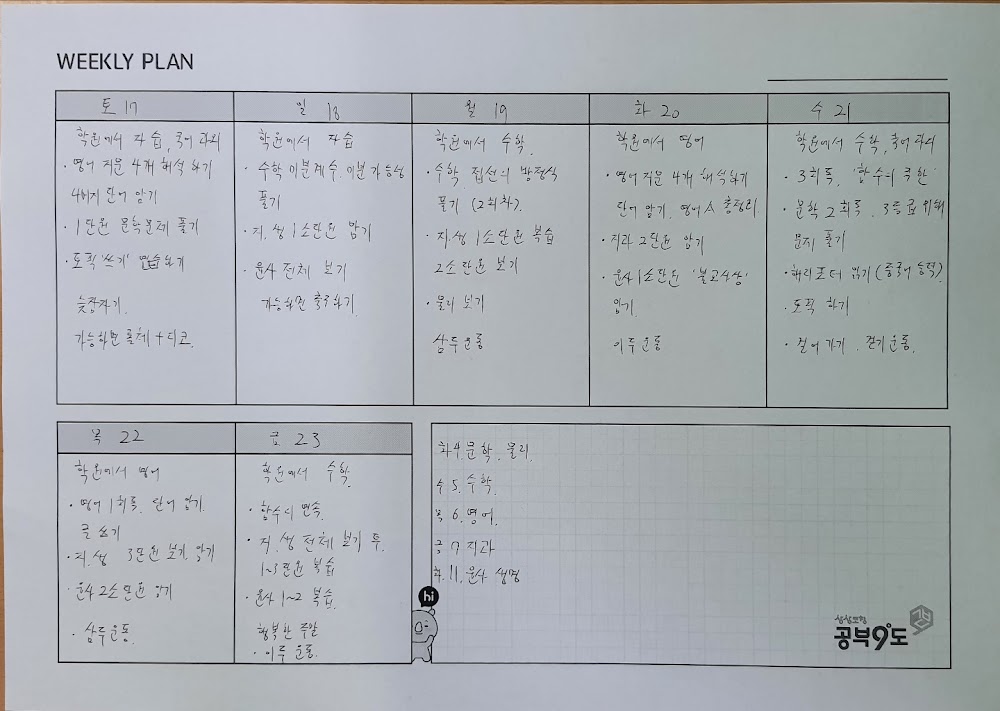 WEEKLY PLAN
토 17
학원에서 자습, 국어 과외
· 영어 지문 4개 해석 하기
4배지 단어 암기
· 1단원 문학문제 풀기
· 토픽 '쓰기' 연습하기
늦잠자기.
가능하면 홈체 + 디코.
일 18
학원에서 자습
· 수학 미분계수. 미분가능성
풀기
· 지.생 1소단원 암기
· 윤사 전체 보기
가능하면 출오하기.
월 19
학원에서 수학.
· 수학 접선의 방정식
풀기 (2회차).
· 지.생 1소단원 복습
2소단원 보기
· 물리 보기
삼두운동
화 20
학원에서 영어
· 영어지문 4개 해석하기
단어 암기. 영어 A 총정리
· 지과 2단원 암기
· 윤사 1소단원 '불교사상'
암기.
이두운동
수 21
학원에서 수학, 국어 과외
· 3회독. '함수의 극한'
· 문학 2회독. 3등급 위해
문제 풀기
· 해리포터 읽기 (중국어 능력).
· 토픽 하기
· 걸어 가기. 걷기 운동.
목 22
학원에서 영어
· 영어 1회독. 단어 암기.
글 쓰기
· 지.생 3단원 보기. 암기
· 윤사 2소단원 암기
· 삼두운동.
금 23
학원에서 수학.
· 함수의 연속.
· 지.생 전체 보기 후.
1~3단원 복습
· 윤사 1~2 복습.
행복한 주말
· 이두 운동.
화4. 문학. 물리.
수 5. 수학.
목 6. 영어.
금 7 지과
화. 11. 윤사 생명
hi
상상코칭
공부9도